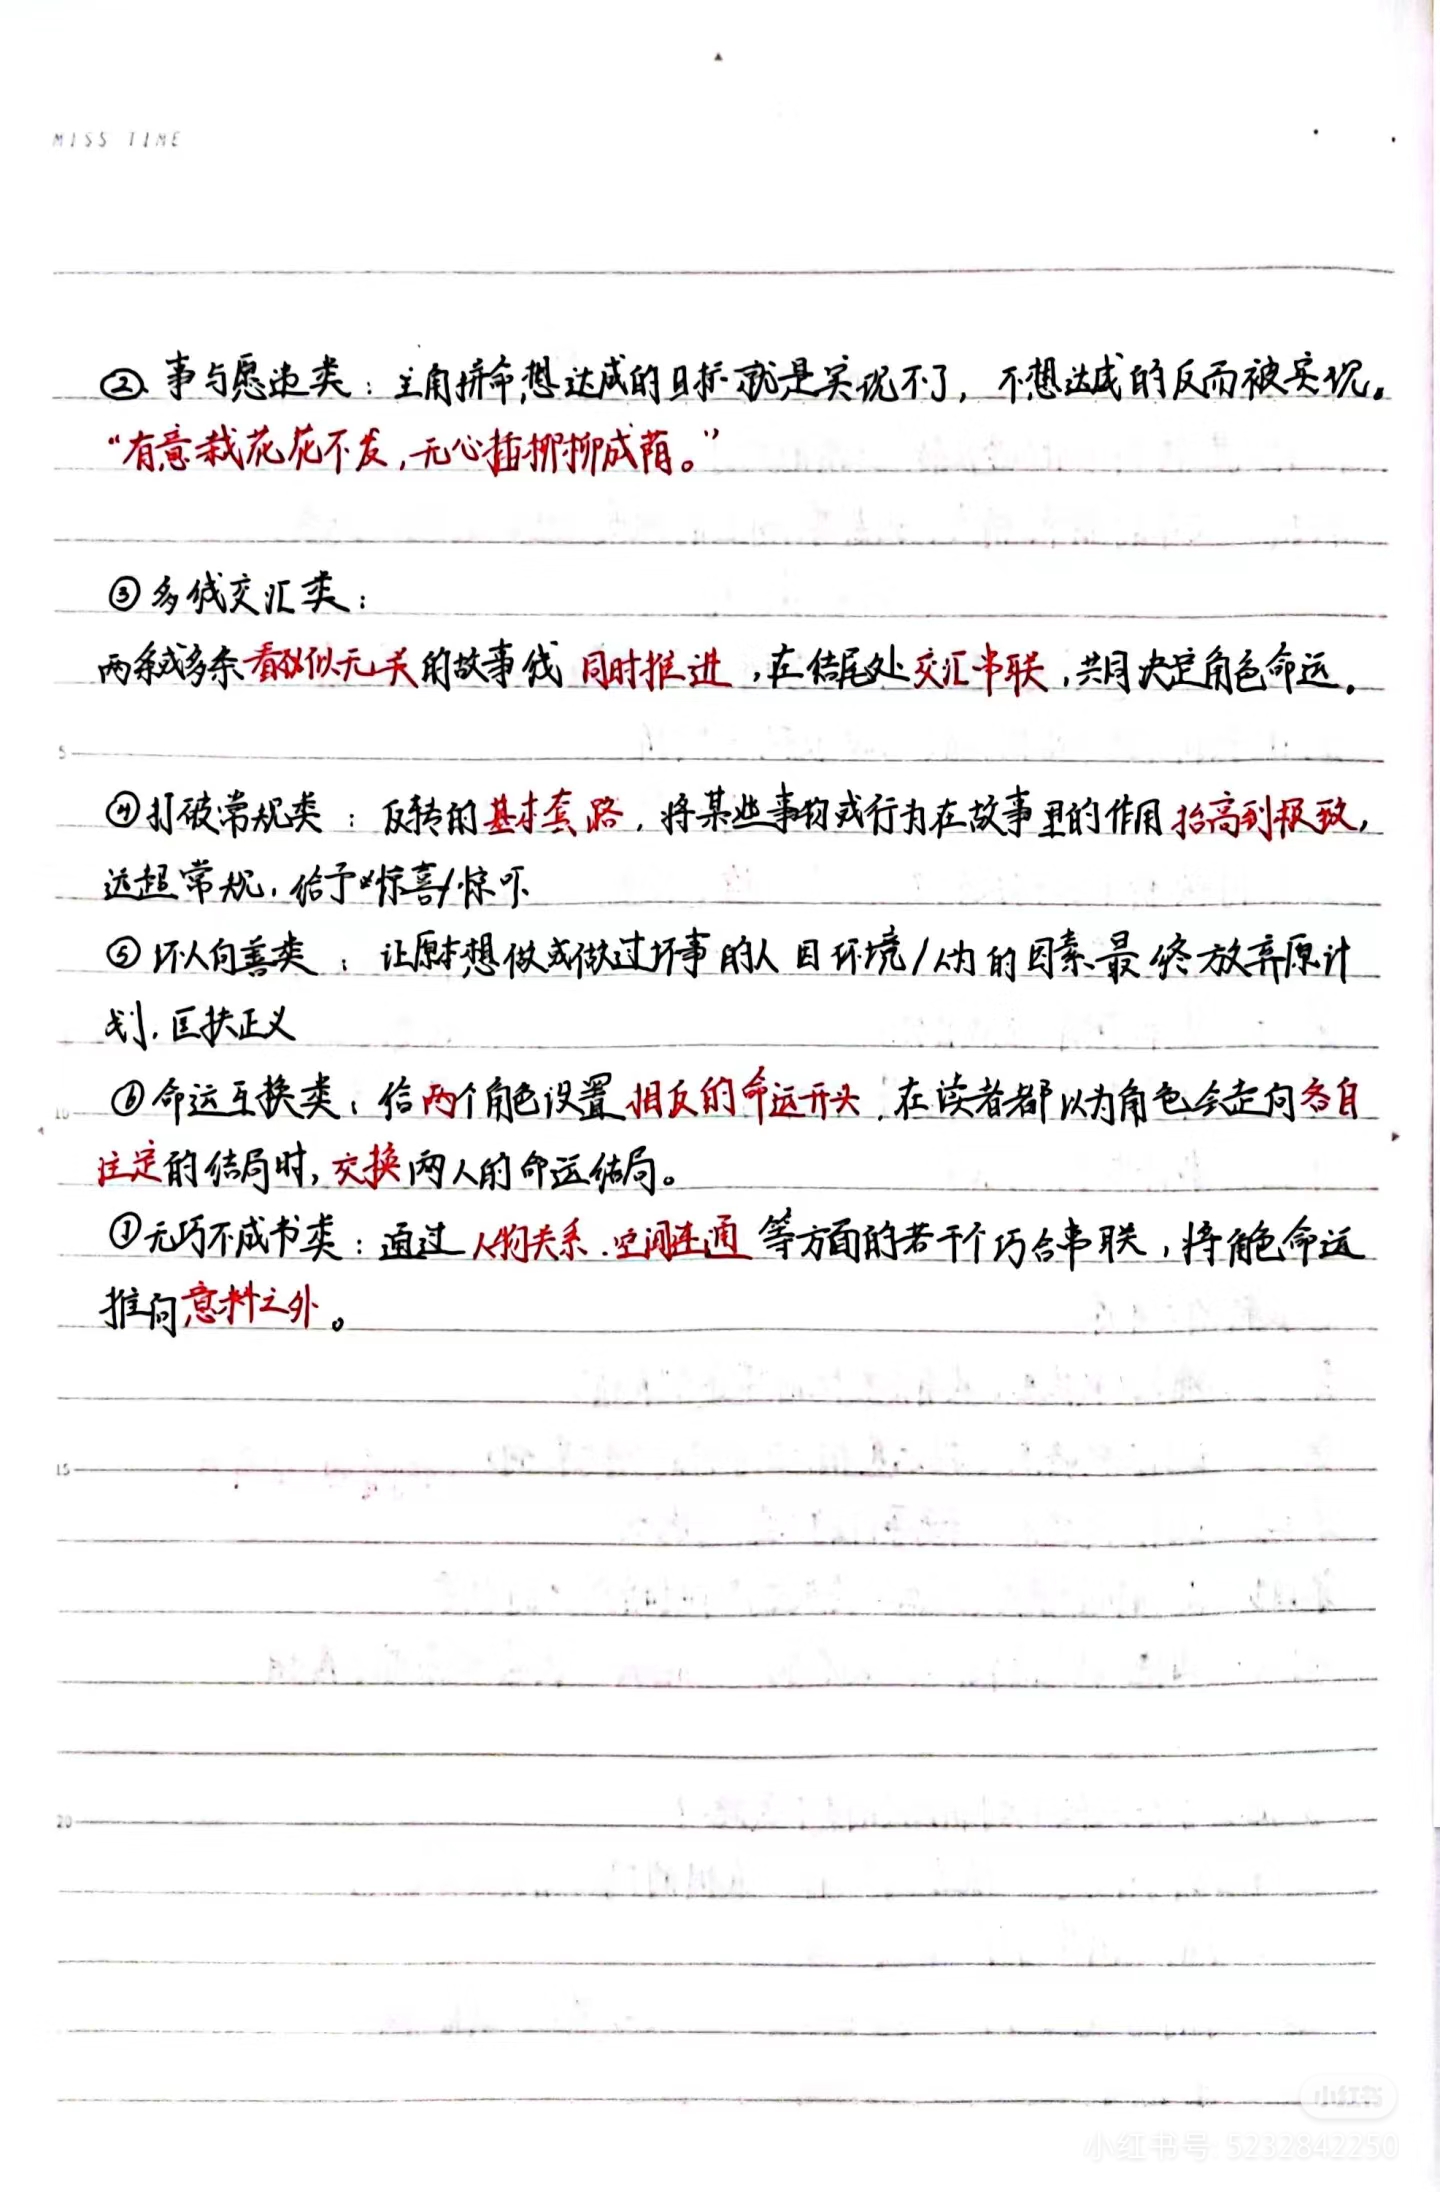 MISS TIME
②. 事与愿违类：主角拼命想达成的目标就是实现不了，不想达成的反而被实现。
“有意栽花花不发，无心插柳柳成荫。”
③多线交汇类：
两条或多条看似无关的故事线 同时推进，在结尾处交汇串联，共同决定角色命运。
5
④打破常规类：反转的基本套路，将某些事物或行为在故事里的作用抬高到极致，
远超常规，给予惊喜/惊吓
⑤坏人向善类：让原本想做或做过坏事的人因环境/人为的因素最终放弃原计
划，匡扶正义
10 ⑥命运互换类：给两个角色设置相反的命运开头，在读者都以为角色会走向各自
注定的结局时，交换两人的命运结局。
⑦无巧不成书类：通过人物关系、空间连通等方面的若干个巧合串联，将角色命运
推向意料之外。
15
20
小红书
小红书号: 5232842250